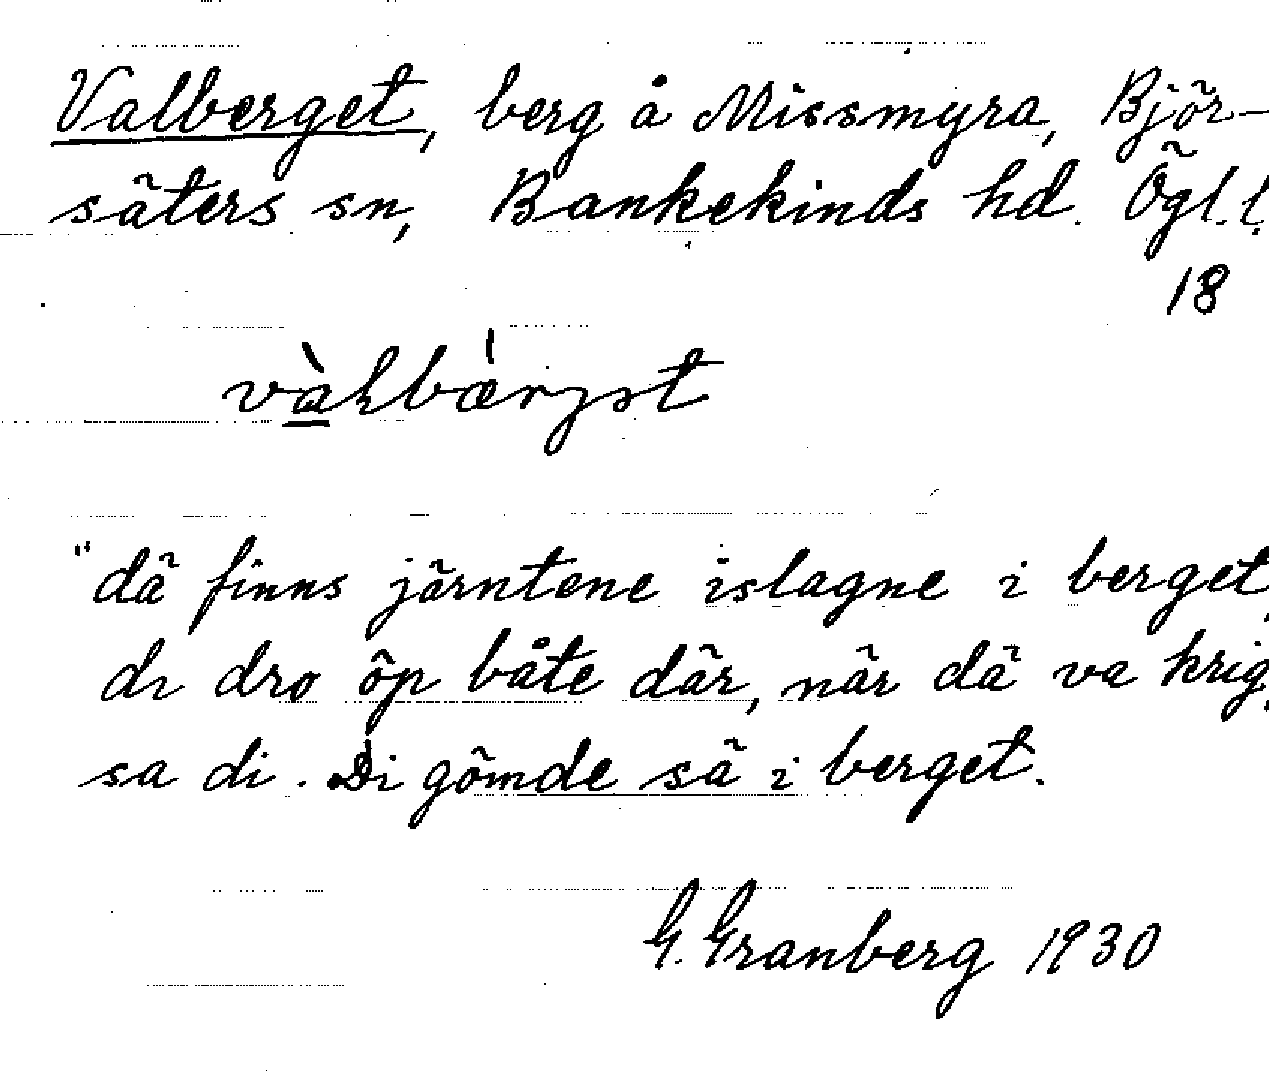 Valberget, berg å Missmyra, Björ-
säters sn, Bankekinds hd. Ögl.l.
18
"dä finns järntene islagne i berget,
di dro öp båte där, när dä va krig,
sa di. Di gömde sä i berget.
G. Granberg 1930